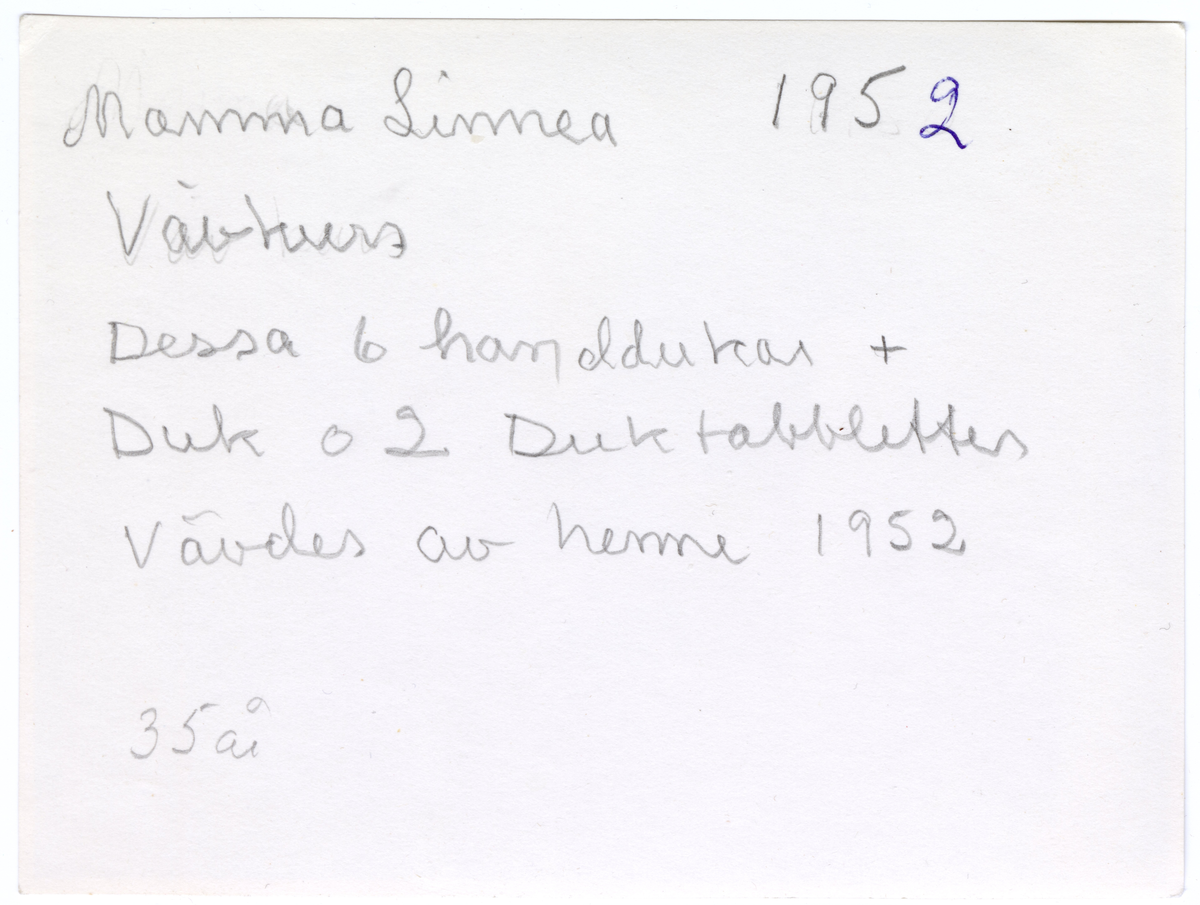 Mamma Linnea 1952
Vävkurs
Dessa 6 handdukar +
Duk o 2 Duktabbletter
Vävdes av henne 1952
35 år